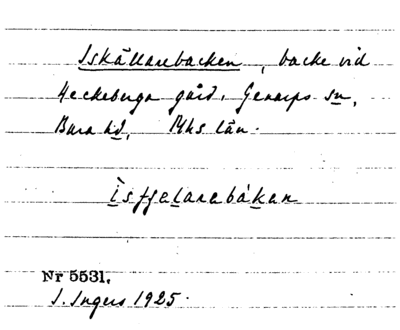 Iskällarebacken, backe vid
Heckeberga gård, Genarps sn,
Bara hd, Mhs län.
ìsfjelarebákan
Nr 5531,
I. Ingers 1925.